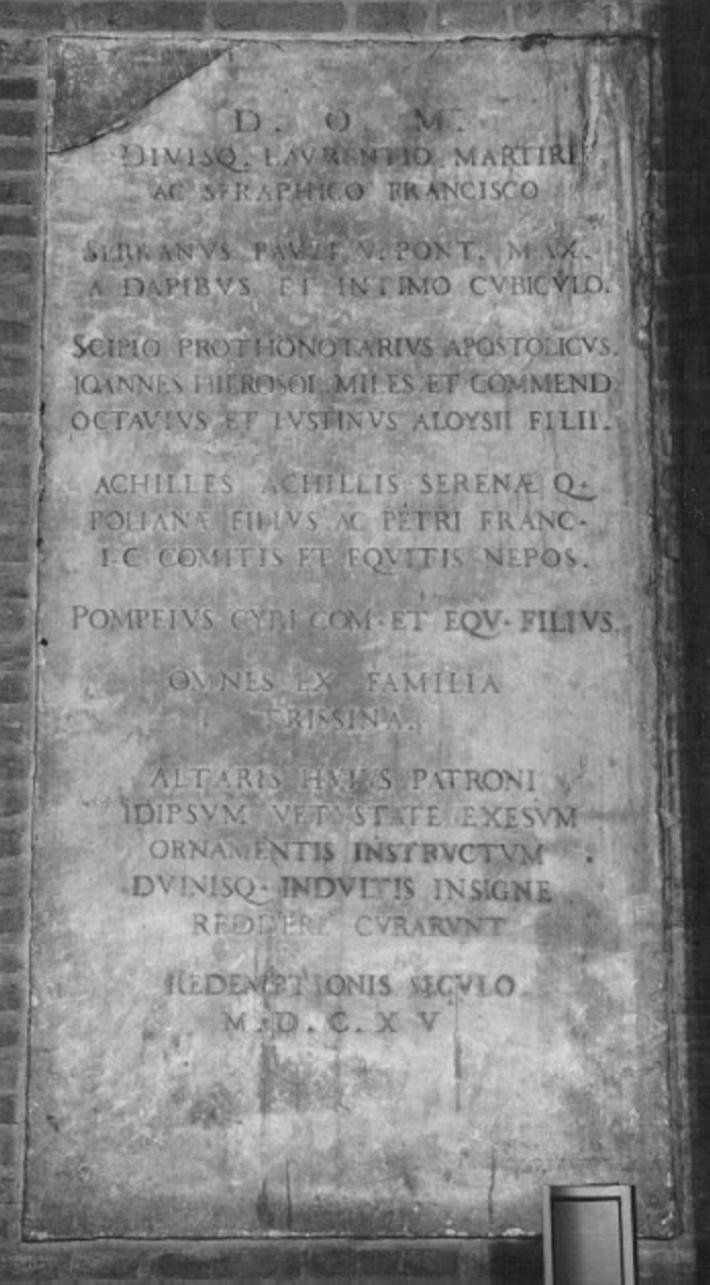 D. O. M.
DIVISQ. LAVRENTIO MARTIRI
AC SERAPHICO FRANCISCO
SERRANVS PAVLI V. PONT. MAX.
A DAPIBVS ET INTIMO CVBICVLO.
SCIPIO PROTHONOTARIVS APOSTOLICVS.
IOANNES HIEROSOL. MILES ET COMMEND
OCTAVIVS ET IVSTINVS ALOYSII FILII.
ACHILLES ACHILLIS SERENÆ Q.
POLIANÆ FILIVS AC PETRI FRANC.
I.C COMITIS ET EQVITIS NEPOS.
POMPEIVS CYRI COM. ET EQV. FILIVS.
OMNES EX FAMILIA
TRISSINA.
ALTARIS HVIVS PATRONI
IDIPSVM VETVSTATE EXESVM
ORNAMENTIS INSTRVCTVM
DVINISQ. INDVLTIS INSIGNE
REDDERE CVRARVNT
REDEMPTIONIS SECVLO
M.D.C.XV